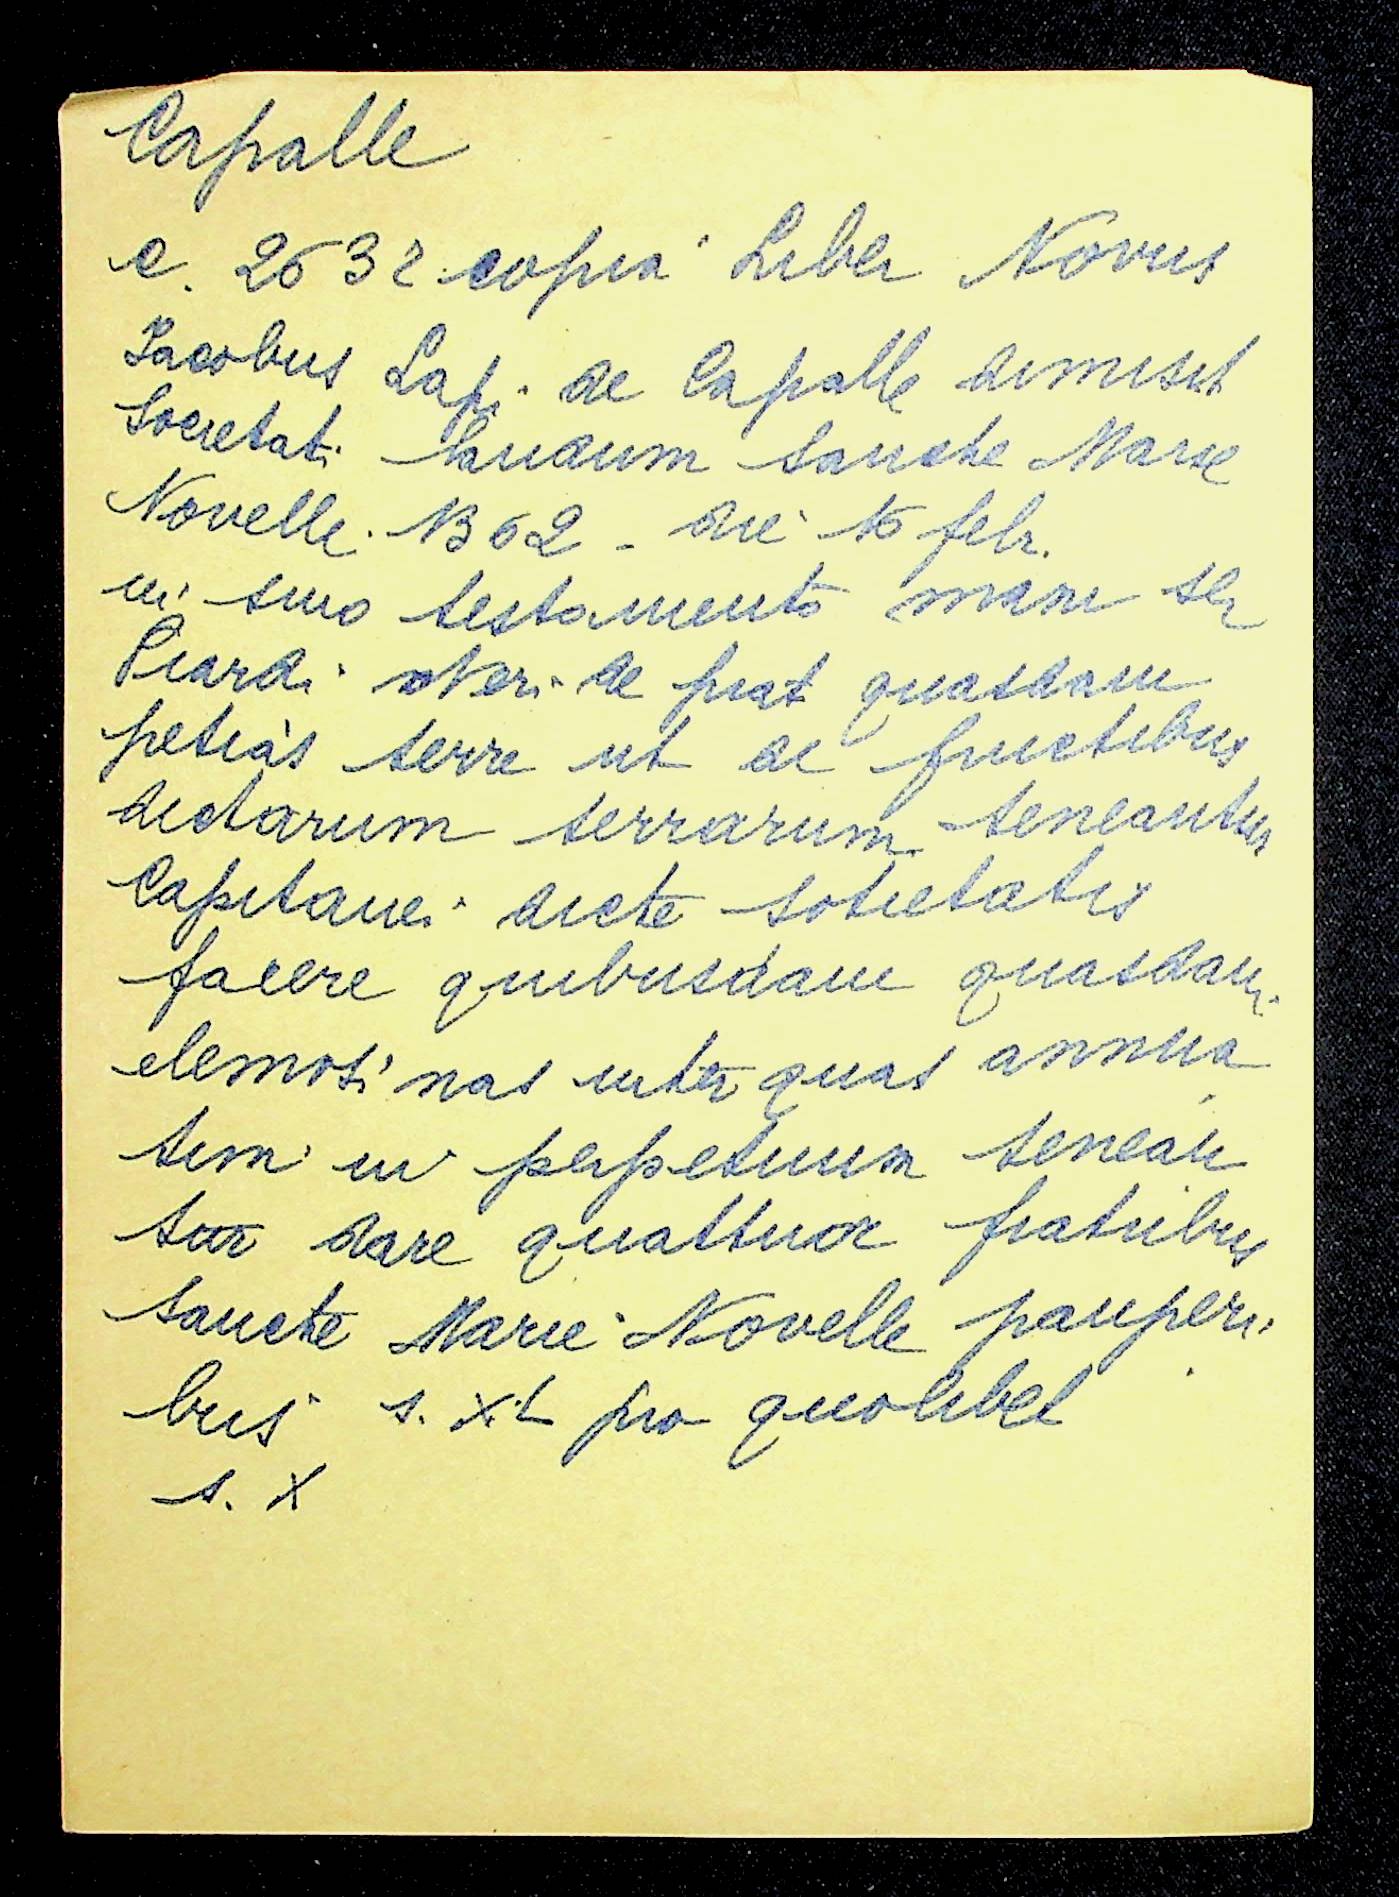 Capalle
c. 263 r copia Liber Novus
Jacobus Lapi de Capalle dimisit
Societati Laudum Sancte Marie
Novelle. 1362 - die 16 febr.
in suo testamento manu ser
Picardi Neri de prat quasdam
petias terre ut de fructibus
dictarum terrarum teneantur
Capitanei dicte sotietatis
facere quibusdam quasdam
elemosinas inter quas annua
tim in perpetuum tenean
tur dare quattuor fratribus
Sancte Marie Novelle pauperi
bus s. XL pro quolibet
s. X